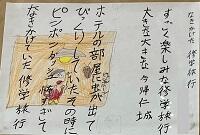 なきかけた修学旅行
すごく楽しみな修学旅行
大きな大きな今帰仁城
ホテルの部屋虫が出て
びっくりしていたその時に
ピンポンダッシュ
なきかけていた修学旅行